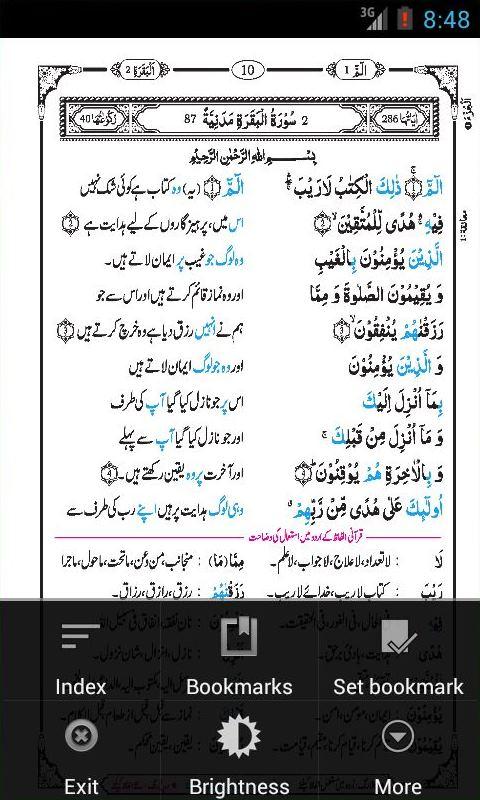 3G 8:48
الٓمّٓ 1
10
اَلْبَقَرَةِ 2
اٰیَاتُہَا 286
2 سُوْرَۃُ الْبَقَرَۃِ مَدَنِیَّۃٌ 87
رُکُوْعَاتُہَا 40
بِسْمِ اللّٰہِ الرَّحْمٰنِ الرَّحِیْمِ
الٓمّٓ ۚ﴿1﴾ ذٰلِکَ الْکِتٰبُ لَارَیْبَ ۚۖۛ
الٓمّٓ ﴿1﴾ (یہ) وہ کتاب ہے کوئی شک نہیں
فِیْہِ ۚۛ ہُدًی لِّلْمُتَّقِیْنَ ۙ﴿2﴾
اس میں، پرہیز گاروں کے لیے ہدایت ہے ﴿2﴾
الَّذِیْنَ یُؤْمِنُوْنَ بِالْغَیْبِ
وہ لوگ جو غیب پر ایمان لاتے ہیں۔
وَ یُقِیْمُوْنَ الصَّلٰوۃَ وَ مِمَّا
اور وہ نماز قائم کرتے ہیں اور اس سے جو
رَزَقْنٰہُمْ یُنْفِقُوْنَ ۙ﴿3﴾
ہم نے انہیں رزق دیا ہے وہ خرچ کرتے ہیں ﴿3﴾
وَ الَّذِیْنَ یُؤْمِنُوْنَ
اور وہ جو لوگ ایمان لاتے ہیں
بِمَاۤ اُنْزِلَ اِلَیْکَ
اس پر جو نازل کیا گیا آپ کی طرف
وَ مَاۤ اُنْزِلَ مِنْ قَبْلِکَ ۚ
اور جو نازل کیا گیا آپ سے پہلے
وَ بِالْاٰخِرَۃِ ہُمْ یُوْقِنُوْنَ ؕ﴿4﴾
اور آخرت پر وہ یقین رکھتے ہیں۔ ﴿4﴾
اُولٰٓئِکَ عَلٰی ہُدًی مِّنْ رَّبِّہِمْ ٭
وہی لوگ ہدایت پر ہیں اپنے رب کی طرف سے
قرآنی الفاظ کے اردو میں استعمال کی وضاحت
لَا : لاتعداد، لاعلاج، لاجواب، لاعلم۔
مِمَّا (مَا) : منجانب، من وعن، ماتحت، ماحول، ماجرا
رَیْبَ : کتاب لاریب، خدائے لاریب۔
رَزَقْنٰہُمْ : رزق، رازق، رزاق۔
Index
Bookmarks
Set bookmark
Exit
Brightness
More